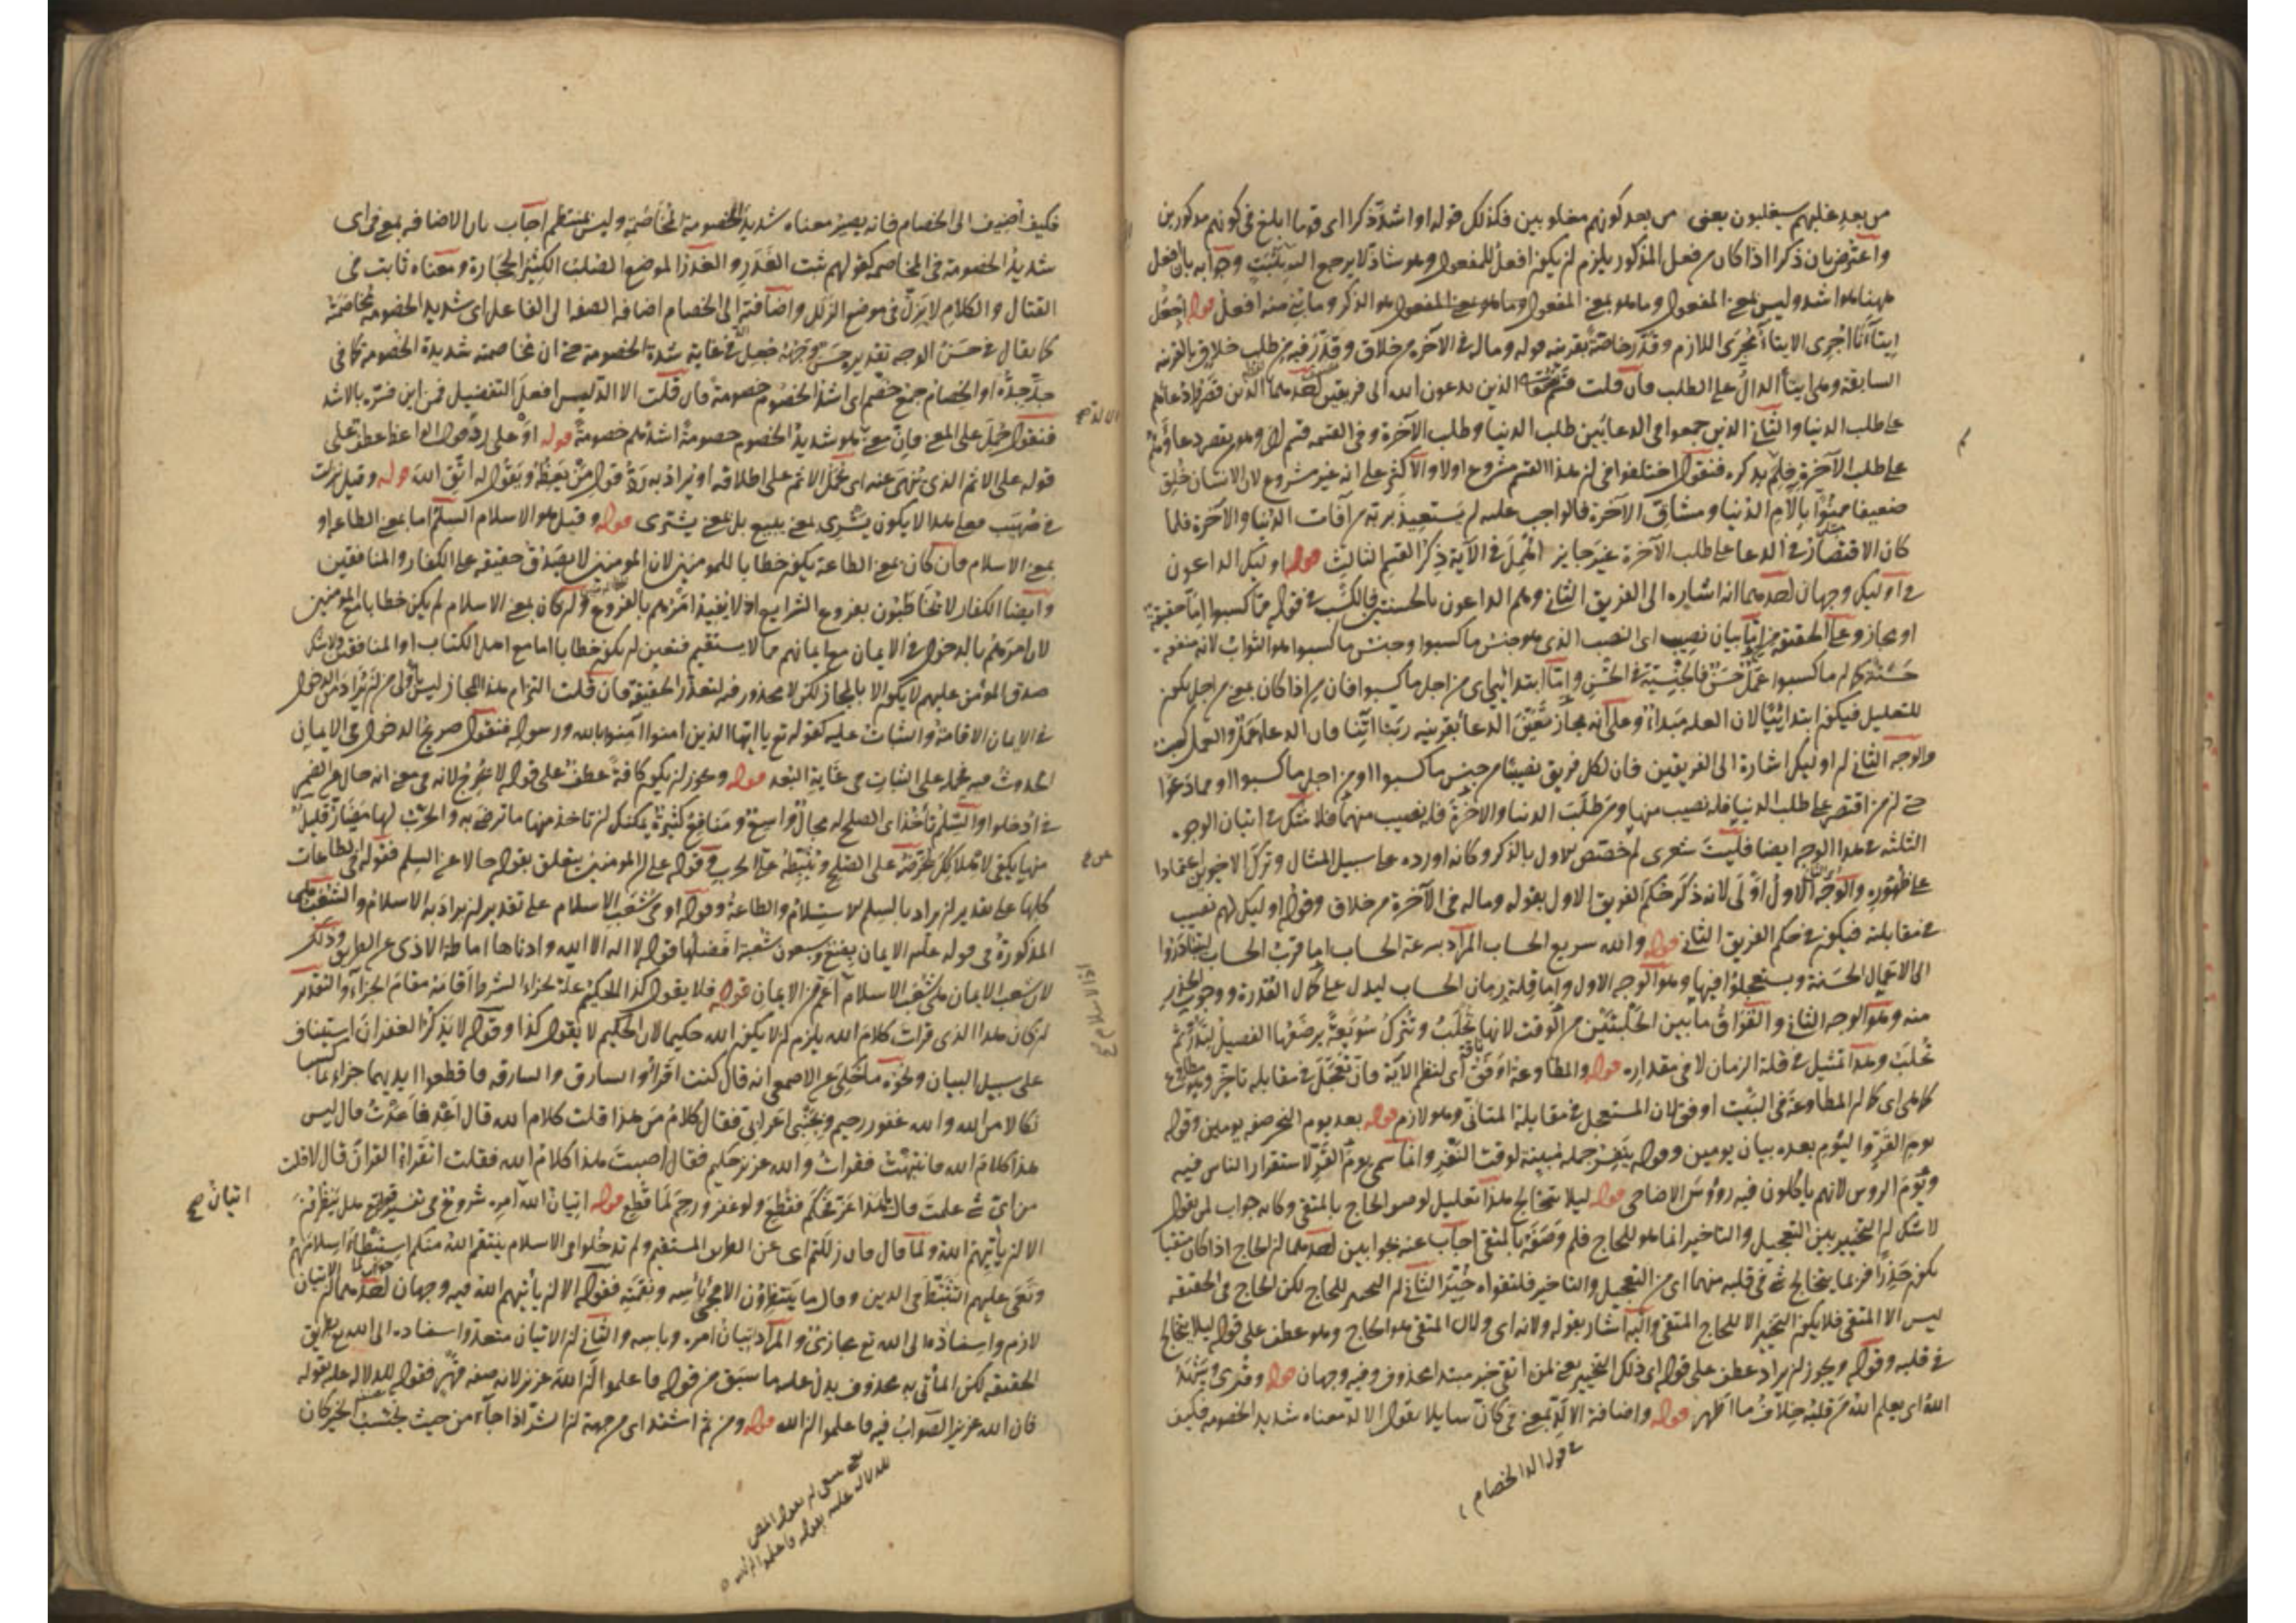 من بعد غلبهم سيغلبون يعنى من بعد كونهم مغلوبين فكذلك قوله او اشد ذكرا اى قوما ابلغ فى كونهم مذكورين
واعترض بان ذكرا اذا كان من فعل المذكور يلزم ان يكون افعل للمفعول وهو شاذ لا يرجع اليه بثبت وجوابه بان افعل
ههنا هو اشد وليس بمعنى المفعول وما هو بمعنى المفعول وما هو بمعنى المفعول هو الذكر وما بنى منه افعل قوله اجعل
ايتاءنا اجرى الايتاء مجرى اللازم وقدر خاصة بقرينة قوله وما له فى الآخرة من خلاق وقدر فيه من طلب خلاق بالقرينة
السابقة وهى ايتاء الدال على الطلب فان قلت الذين يدعون الله الى فريقين احدهما الذين قصروا دعائهم
على طلب الدنيا والثانى الذين جمعوا فى الدعا بين طلب الدنيا وطلب الآخرة وفى القسمة قسم آخر وهو من يقصر دعاؤه
على طلب الآخرة فلم يذكره فنقول اختلفوا فى ان هذا القسم مشروع اولا والاكثر على انه غير مشروع لان الانسان خلق
ضعيفا ممنوا بآلام الدنيا ومشاق الآخرة فالواجب عليه ان يستعيذ بربه من آفات الدنيا والآخرة فلما
كان الاقتصار فى الدعا على طلب الآخرة غير جايز اهمل فى الآية ذكر القسم الثالث قوله اوليك الداعون
فى اوليك وجهان احدهما انه اشاره الى الفريق الثانى وهم الداعون بالحسنتين فالكسب فى قوله مما كسبوا اما حقيقة
او مجاز وعلى الحقيقة من اما بيان نصيب اى النصيب الذى هو جنس ما كسبوا وجنس ما كسبوا هو الثواب لانه منفعة
حسنة كما ان ما كسبوا عمل حسن فالجنسية فى الحسن واما ابتدائية اى من اجل ما كسبوا فان من اذا كان بمعنى من اجل يكون
للتعليل فيكون ابتدائيا لان العلة مبدأ وعلى انه مجاز بقرينة ربنا آتنا فان الدعا عمل والعمل كسب
والوجه الثانى ان اوليك اشارة الى الفريقين فان لكل فريق نصيبا من جنس ما كسبوا او من اجل ما كسبوا او مما دعوا
حتى ان من اقتصر على طلب الدنيا فله نصيب منها ومن طلب الدنيا والآخرة فله نصيب منهما فلا شك فى اتيان الوجوه
الثلثة فى هذا الوجه ايضا فليت شعرى لم خصص الاول بالذكر وكانه اورده على سبيل المثال وترك الاخيرين اعتمادا
على ظهوره والوجه الاول اولى لانه ذكر حكم الفريق الاول بقوله وما له فى الآخرة من خلاق وقوله اوليك لهم نصيب
فى مقابلته فيكون فى حكم الفريق الثانى قوله والله سريع الحساب المراد بسرعة الحساب اما قرب الحساب ليبادروا
الى الاعمال الحسنة ويستعجلوا فيها وهو الوجه الاول واما قلة زمان الحساب ليدل على كمال القدرة ووجوب الحذر
منه وهو الوجه الثانى والفواق ما بين الحلبتين من الوقت لانها تحلب وتترك سويعة يرضعها الفصيل لتدر ثم
تحلب وهذا تمثيل فى قلة الزمان لا فى مقداره قوله والمطاوعة اوفق اى لنظم الآية فان تعجل فى مقابله تاخر
كما هى اى كما ان المطاوعة فى البيت اوفق لان المستعجل فى مقابلة المتأنى وهو لازم قوله بعد يوم النحر صفه يومين وقوله
يوم القر واليوم بعده بيان يومين وقوله ينفر جملة مبينة لوقت النفر وانما سمى يوم القر لاستقرار الناس فيه
ويوم الروس لانهم ياكلون فيه رؤوس الاضاحى قوله ليلا يتخالج هذا تعليل لوصف الحاج بالمتقى وكانه جواب لمن يقول
لا شك ان التخيير بين التعجيل والتاخير انما هو للحاج فلم وصفه بالمتقى اجاب عنه بجوابين احدهما ان الحاج اذا كان متقيا
يكون حذرا فربما يتخالج شى فى قلبه منهما اى من التعجيل والتاخير فلتقواه خير الثانى ان التخيير للحاج لكن الحاج فى الحقيقة
ليس الا المتقى فلا يكون التخيير الا للحاج المتقى واليه اشار بقوله ولانه اى ولان المتقى هو الحاج وهو عطف على قوله ليلا يتخالج
فى قلبه وقوله ويجوز ان يراد عطف على قوله اى ذلك التخيير بمعنى لمن اتقى خبر مبتدا محذوف وفيه وجهان قوله وقرى ويشهد
الله اى يعلم الله من قلبه خلاف ما اظهر قوله واضافة الالد بمعنى فى كان سايلا يقول الالد معناه شديد الخصومة فكيف
فى قوله الد الخصام
فكيف اضيف الى الخصام فانه يصير معناه شديد الخصومة المخاصمة وليس بمنتظم اجاب بان الاضافة بمعنى فى اى
شديد الخصومة فى المخاصمة كقولهم ثبت الغدر والغدر الموضع الصلب الكثير الحجارة ومعناه ثابت فى
القتال والكلام لا يزل فى موضع الزلل واضافته الى الخصام اضافة الصفة الى الفاعل اى شديد الخصومة مخاصمته
كما يقال فى حسن الوجه تقديره حسن وجهه جعل فى غاية شدة الخصومة حتى ان مخاصمته شديدة الخصومة كما فى
جد جده او الخصام جمع خصم اى اشد الخصوم خصومة فان قلت الالد ليس افعل التفضيل فمن اين فسره بالاشد
فنقول حمل على المعنى فان معنى هو شديد الخصوم خصومة اشدهم خصومة قوله او على رد قول الواعظ عطف على
قوله على الاثم الذى نهى عنه اى تحمل الاثم على اطلاقه او يراد به رد قول من يعظ ويقول له اتق الله قوله وقيل نزلت
فى صهيب فعلى هذا لا يكون يشرى بمعنى يبيع بل بمعنى يشترى قوله وقيل هو الاسلام السلم اما بمعنى الطاعة او
بمعنى الاسلام فان كان بمعنى الطاعة يكون خطابا للمومنين لان المومنين لا يصدق حقيقة على الكفار والمنافقين
وايضا الكفار لا يخاطبون بفروع الشرايع اذ لا يفيد امرهم بالفروع وان كان بمعنى الاسلام لم يكن خطابا مع المومنين
لان امرهم بالدخول فى الايمان مع ايمانهم مما لا يستقيم فتعين ان يكون خطابا اما مع اهل الكتاب او المنافقين ولا شك
صدق المومن عليهم لا يكون الا بالمجاز لكن لا محذور فيه لتعذر الحقيقة فان قلت التزام هذا المجاز ليس باولى من ان يراد من الدخول
فى الايمان الاقامة والثبات عليه كقوله تع يا ايها الذين امنوا آمنوا بالله ورسوله فنقول صريح الدخول فى الايمان
الحدوث فيه فحمله على الثبات فى غاية البعد قوله ويجوز ان يكون كافة عطف على قوله لا يخرج لانه فى معنى انه حال من الضمير
فى ادخلوا والسلم تأخذ اى الصلح له مجال واسع ومنافع كثيرة يمكنك ان تاخذ منها ما ترضى به والحرب لها مضار قليل
منها يكفى لاهلاكك يحرضه على الصلح ويثبطه عن الحرب وقوله على ان المومنين يتعلق بقوله حالا عن السلم فقوله فى الطاعات
كلها على تقدير ان يراد بالسلم الاستسلام والطاعة وقوله او فى شعب الاسلام على تقدير ان يراد به الاسلام والشعب هى
المذكورة فى قوله علم الايمان بضع وسبعون شعبة افضلها قول لا اله الا الله وادناها اماطة الاذى عن الطريق وذلك
لان شعب الايمان هى شعب الاسلام اعم من الايمان قوله فلا يقول كذا الحكيم علة لجزاء الشرط اقامة مقام الجزاء والتقدير
ان كان هذا الذى قرات كلام الله يلزم ان لا يكون الله حكيما لان الحكيم لا يقول كذا وقوله لا يذكر الغفران استيناف
على سبيل البيان ونحوه ما حكى عن الاصمعى انه قال كنت اقرأ والسارق والسارقة فاقطعوا ايديهما جزاء بما كسبا
نكالا من الله والله غفور رحيم وبجنبى اعرابى فقال كلام من هذا قلت كلام الله قال اعد فاعدت قال ليس
هذا كلام الله فانتبهت فقرات والله عزيز حكيم فقال اصبت هذا كلام الله فقلت اتقرأ القران قال لا فقلت
من اى شى علمت قال يا هذا عز فحكم فقطع ولو غفر ورحم لما قطع قوله اتيان الله امره شروع فى تفسير قوله هل ينظرون
الا ان يأتيهم الله ولما قال فان زللتم اى عن الطريق المستقيم ولم تدخلوا فى الاسلام ينتقم الله منكم استبطأ اسلامهم
ونعى عليهم التثبط فى الدين وقال ما ينتظرون الا مجئ بأسه ونقمته فقوله الا ان يأتيهم الله فيه وجهان احدهما ان الاتيان
لازم واسناده الى الله تع مجازى والمراد اتيان امره وبأسه والثانى ان الاتيان متعد واسناده الى الله بطريق
الحقيقة لكن المأتى به محذوف يدل عليه ما سبق من قوله فاعلموا ان الله عزيز لانه صفة قهر فقوله للدلالة عليه بقوله
فان الله عزيز الصواب فيه فاعلموا ان الله قوله ومن ثم اشتد اى من جهة ان الشر اذا جاء من حيث يحتسب الخير كان
اتيان صح
للدلالة عليه بقوله واعلموا ان الله